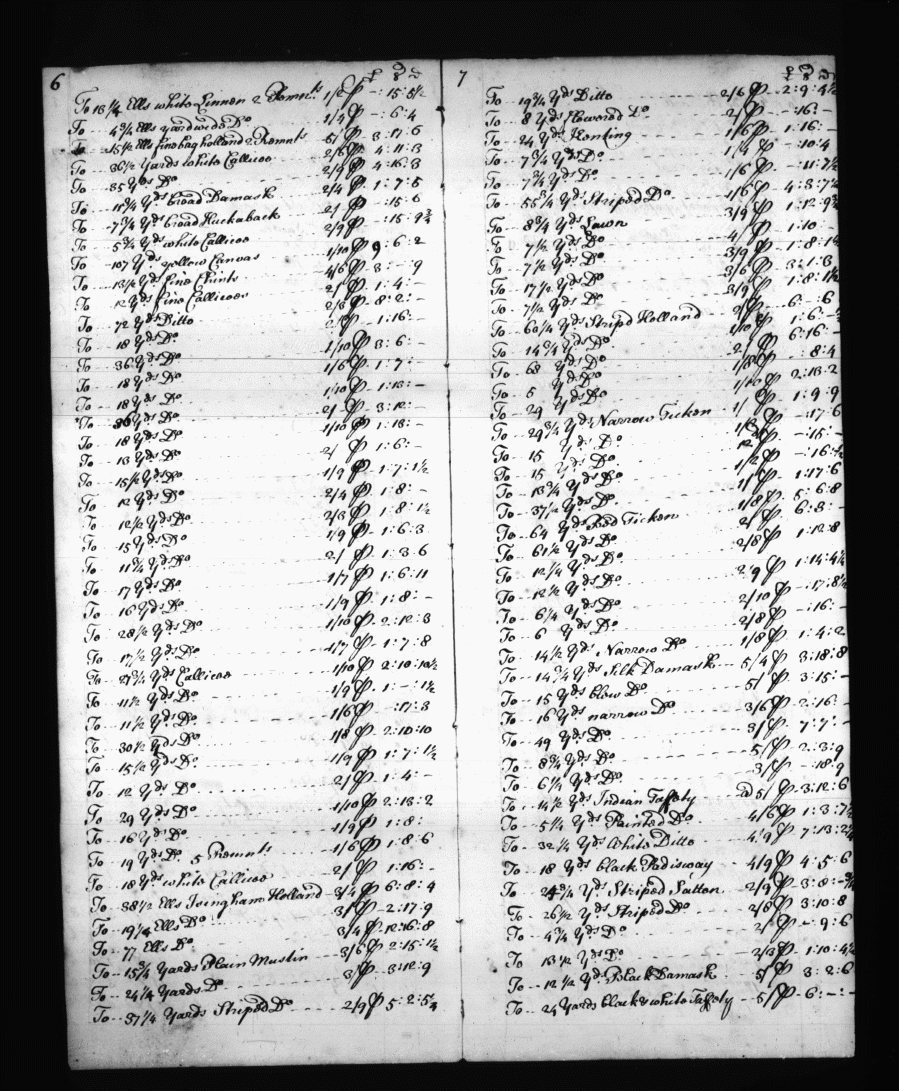 6
£ s d
To 13 1/4 Ells white Linnen 2 Remnts. 1/2 ⅌ -:15:5 1/2
To 4 3/4 Ells yard wede Do 1/4 ⅌ -:6:4
To 15 1/2 Ells fine bag holland 2 Remnts 5/ ⅌ 3:17:6
To 36 1/2 Yards white Callicoe 2/6 ⅌ 4:11:3
To 35 Yds Do 2/9 ⅌ 4:16:3
To 11 3/4 Yds broad Damask 2/4 ⅌ 1:7:5
To 7 3/4 Yds broad Huckaback 2/ ⅌ -:15:6
To 5 3/4 Yds white Callicoe 2/9 ⅌ -:15:9 3/4
To 107 Yds yellow Canvas 1/10 ⅌ 9:6:2
To 13 1/2 Yds fine Chints 4/6 ⅌ 3:-:9
To 12 Yds fine Callicoes 2/ ⅌ 1:4:-
To 72 Yds Ditto 2/3 ⅌ 8:2:-
To 18 Yds Do 2/ ⅌ 1:16:-
To 36 Yds Do 1/10 ⅌ 3:6:-
To 18 Yds Do 1/6 ⅌ 1:7:-
To 18 Yds Do 1/10 ⅌ 1:13:-
To 36 Yds Do 2/ ⅌ 3:12:-
To 18 Yds Do 1/10 ⅌ 1:13:-
To 13 Yds Do 2/ ⅌ 1:6:-
To 15 1/2 Yds Do 1/9 ⅌ 1:7:1 1/2
To 12 Yds Do 2/4 ⅌ 1:8:-
To 12 1/2 Yds Do 2/3 ⅌ 1:8:1 1/2
To 15 Yds Do 1/9 ⅌ 1:6:3
To 11 3/4 Yds Do 2/ ⅌ 1:3:6
To 17 Yds Do 1/7 ⅌ 1:6:11
To 16 Yds Do 1/9 ⅌ 1:8:-
To 28 1/2 Yds Do 1/10 ⅌ 2:12:3
To 17 1/2 Yds Do 1/7 ⅌ 1:7:8
To 27 3/4 Yds Callicoe 1/10 ⅌ 2:10:10 1/2
To 11 1/2 Yds Do 1/9 ⅌ 1:-:1 1/2
To 11 1/2 Yds Do 1/6 ⅌ -:17:3
To 30 1/2 Yds Do 1/8 ⅌ 2:10:10
To 15 1/2 Yds Do 1/9 ⅌ 1:7:1 1/2
To 12 Yds Do 2/ ⅌ 1:4:-
To 29 Yds Do 1/10 ⅌ 2:13:2
To 16 Yds Do 1/9 ⅌ 1:8:
To 19 Yds Do 5 Remnts 1/6 ⅌ 1:8:6
To 18 Yds white Callicoe 2/ ⅌ 1:16:-
To 38 1/2 Ells Isingham Holland 3/4 ⅌ 6:8:4
To 19 1/4 Ells Do 3/ ⅌ 2:17:9
To 77 Ells Do 3/4 ⅌ 12:16:8
To 15 3/4 Yards Plain Muslin 3/6 ⅌ 2:15:1 1/2
To 24 1/4 Yards Do 3/ ⅌ 3:12:9
To 37 1/4 Yards Striped Do 2/9 ⅌ 5:2:5 1/4
7
£ s d
To 19 3/4 Yds Ditto 2/6 ⅌ 2:9:4 1/2
To 8 Yds flowered Do 2/ ⅌ -:16:-
To 24 Yds Kenting 1/6 ⅌ 1:16:-
To 7 3/4 Yds Do 1/4 ⅌ -:10:4
To 7 3/4 Yds Do 1/6 ⅌ -:11:7 1/2
To 55 3/4 Yds Striped Do 1/6 ⅌ 4:3:7 1/2
To 8 3/4 Yds Lawn 3/9 ⅌ 1:12:9 3/4
To 7 1/2 Yds Do 4/ ⅌ 1:10
To 7 1/2 Yds Do 3/9 ⅌ 1:8:1 1/2
To 17 1/2 Yds Do 3/6 ⅌ 3:1:3
To 7 1/2 Yds Do 3/9 ⅌ 1:8:1 1/2
To 60 1/4 Yds Stripd Holland 2/ ⅌ 6:-:6
To 14 3/4 Yds Do 1/10 ⅌ 1:6:
To 68 Yds Do 2/ ⅌ 6:16:-
To 5 Yds Do 1/8 ⅌ -:8:4
To 29 Yds Do 1/10 ⅌ 2:13:2
To 29 3/4 Yds Narrow Ticken 1/ ⅌ 1:9:9
To 15 Yds Do 1/2 ⅌ -:17:6
To 15 Yds Do -:15:-
To 13 3/4 Yds Do 1/2 ⅌ -:16:1/2
To 37 1/2 Yds Do 1/ ⅌ 1:17:6
To 64 Yds Bed Ticken 1/8 ⅌ 5:6:8
To 61 1/2 Yds Do 2/ ⅌ 6:3:-
To 12 1/4 Yds Do 2/8 ⅌ 1:12:8
To 12 1/2 Yds Do 2/9 ⅌ 1:14:4 1/2
To 6 1/4 Yds Do 2/10 ⅌ -:17:8 1/2
To 6 Yds Do 2/8 ⅌ -:16:-
To 14 1/2 Yds Narrow Do 1/8 ⅌ 1:4:2
To 14 3/4 Yds Silk Damask 5/4 ⅌ 3:18:8
To 15 Yds blew Do 5/ ⅌ 3:15:-
To 16 Yds narrow Do 3/6 ⅌ 2:16:-
To 49 Yds Do 3/ ⅌ 7:7:-
To 8 3/4 Yds Do 5/ ⅌ 2:3:9
To 6 1/4 Yds Do 3/ ⅌ -:18:9
To 14 1/2 Yds Indian Taffety @ 5/ ⅌ 3:12:6
To 5 1/4 Yds Painted Do 4/6 ⅌ 1:3:7 1/2
To 32 1/4 Yds White Ditto 4/9 ⅌ 7:13:2 1/4
To 18 Yds black Padisway 4/9 ⅌ 4:5:6
To 24 3/4 Yds Striped Sattin 2/9 ⅌ 3:8:-3/4
To 26 1/2 Yds Striped Do 2/8 ⅌ 3:10:8
To 4 3/4 Yds Do 2/ ⅌ -:9:6
To 13 1/2 Yds Do 2/3 ⅌ 1:10:4 1/2
To 12 1/2 Yds Black Damask 5/ ⅌ 3:2:6
To 24 Yards black & white Taffety 5/ ⅌ 6:-:-